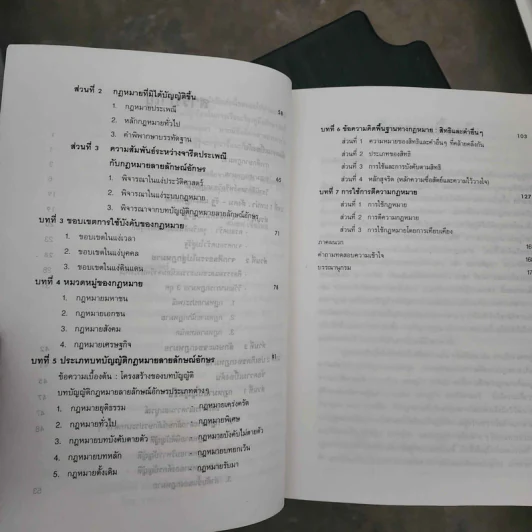 ส่วนที่ 2 กฎหมายที่มิได้บัญญัติขึ้น
1. กฎหมายประเพณี
2. หลักกฎหมายทั่วไป
3. คำพิพากษาบรรทัดฐาน
ส่วนที่ 3 ความสัมพันธ์ระหว่างจารีตประเพณี
กับกฎหมายลายลักษณ์อักษร
1. พิจารณาในแง่ประวัติศาสตร์
2. พิจารณาในแง่ระบบกฎหมาย
3. พิจารณาจากบทบัญญัติกฎหมายลายลักษณ์อักษร
บทที่ 3 ขอบเขตการใช้บังคับของกฎหมาย 71
1. ขอบเขตในแง่เวลา
2. ขอบเขตในแง่บุคคล
3. ขอบเขตในแง่ดินแดน
บทที่ 4 หมวดหมู่ของกฎหมาย
1. กฎหมายมหาชน
2. กฎหมายเอกชน
3. กฎหมายสังคม
4. กฎหมายเศรษฐกิจ
บทที่ 5 ประเภทบทบัญญัติกฎหมายลายลักษณ์อักษร
ข้อความเบื้องต้น : โครงสร้างของบทบัญญัติ
บทบัญญัติกฎหมายลายลักษณ์อักษรประเภทต่างๆ
1. กฎหมายยุติธรรม กฎหมายเคร่งครัด
2. กฎหมายทั่วไป กฎหมายพิเศษ
3. กฎหมายบทบังคับตายตัว กฎหมายบังคับไม่ตายตัว
4. กฎหมายบทหลัก กฎหมายบทยกเว้น
5. กฎหมายดั้งเดิม กฎหมายรับมา
บทที่ 6 ข้อความคิดพื้นฐานทางกฎหมาย : สิทธิและคำอื่นๆ 103
ส่วนที่ 1 ความหมายของสิทธิและคำอื่นๆ ที่คล้ายคลึงกัน
ส่วนที่ 2 ประเภทของสิทธิ
ส่วนที่ 3 การใช้และการบังคับตามสิทธิ
ส่วนที่ 4 หลักสุจริต (หลักความซื่อสัตย์และความไว้วางใจ)
บทที่ 7 การใช้การตีความกฎหมาย 127
ส่วนที่ 1 การใช้กฎหมาย
ส่วนที่ 2 การตีความกฎหมาย
ส่วนที่ 3 การใช้กฎหมายโดยการเทียบเคียง
ภาคผนวก
คำถามทดสอบความเข้าใจ
บรรณานุกรม